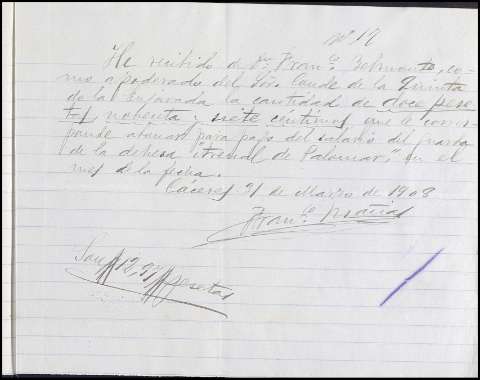 nº 12
He recibido de Dn. Franco. Belmonte, co-
mo apoderado del Sor. Conde de la Quinta
de la Enjarada la cantidad de doce pese-
tas noventa y siete centimos que le corres-
ponde abonar para pago del salario del guarda
de la dehesa "Arenal de Palomar," en el
mes de la fecha.
Cáceres 31 de Marzo de 1908
Franco.
Son # 12,97 # pesetas